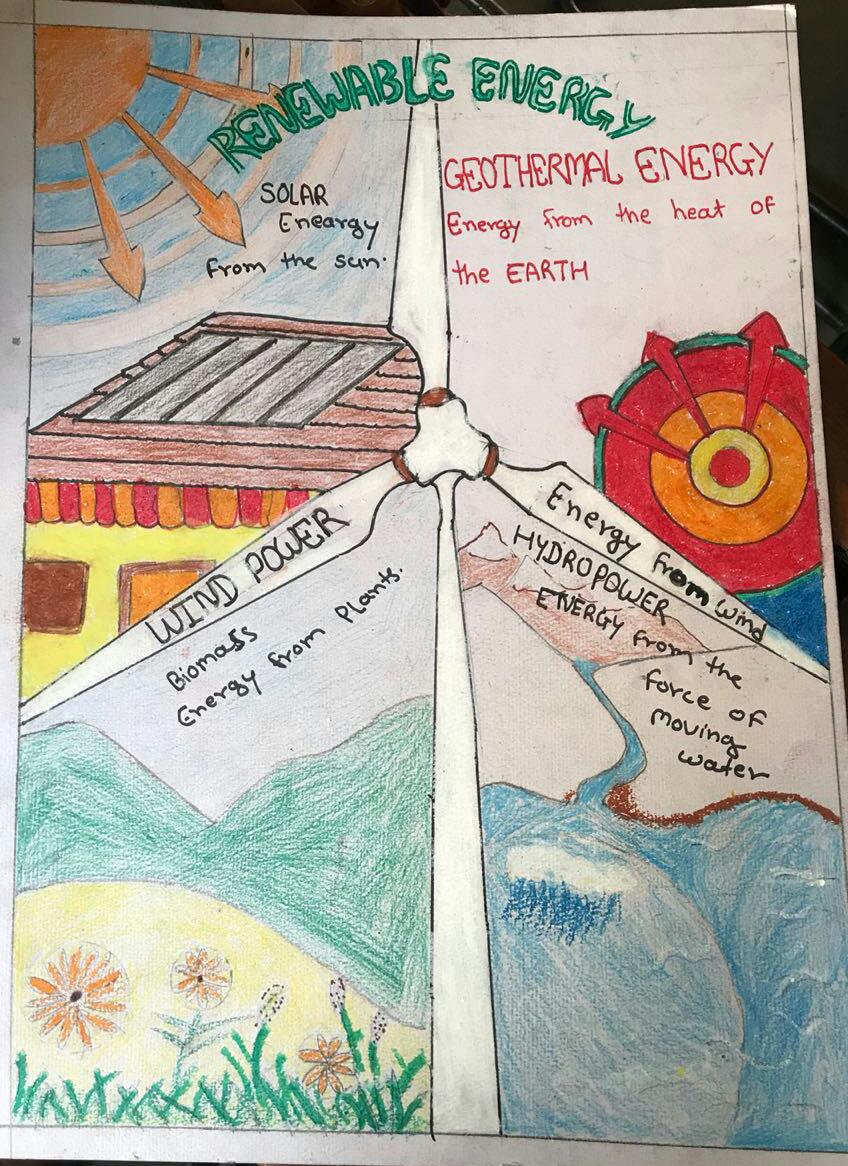 RENEWABLE ENERGY
SOLAR
Eneargy
from the sun.
GEOTHERMAL ENERGY
Energy from the heat of
the EARTH
WIND POWER
Energy from wind
Biomass
Energy from Plants.
HYDROPOWER
ENERGY from the
force of
moving
water